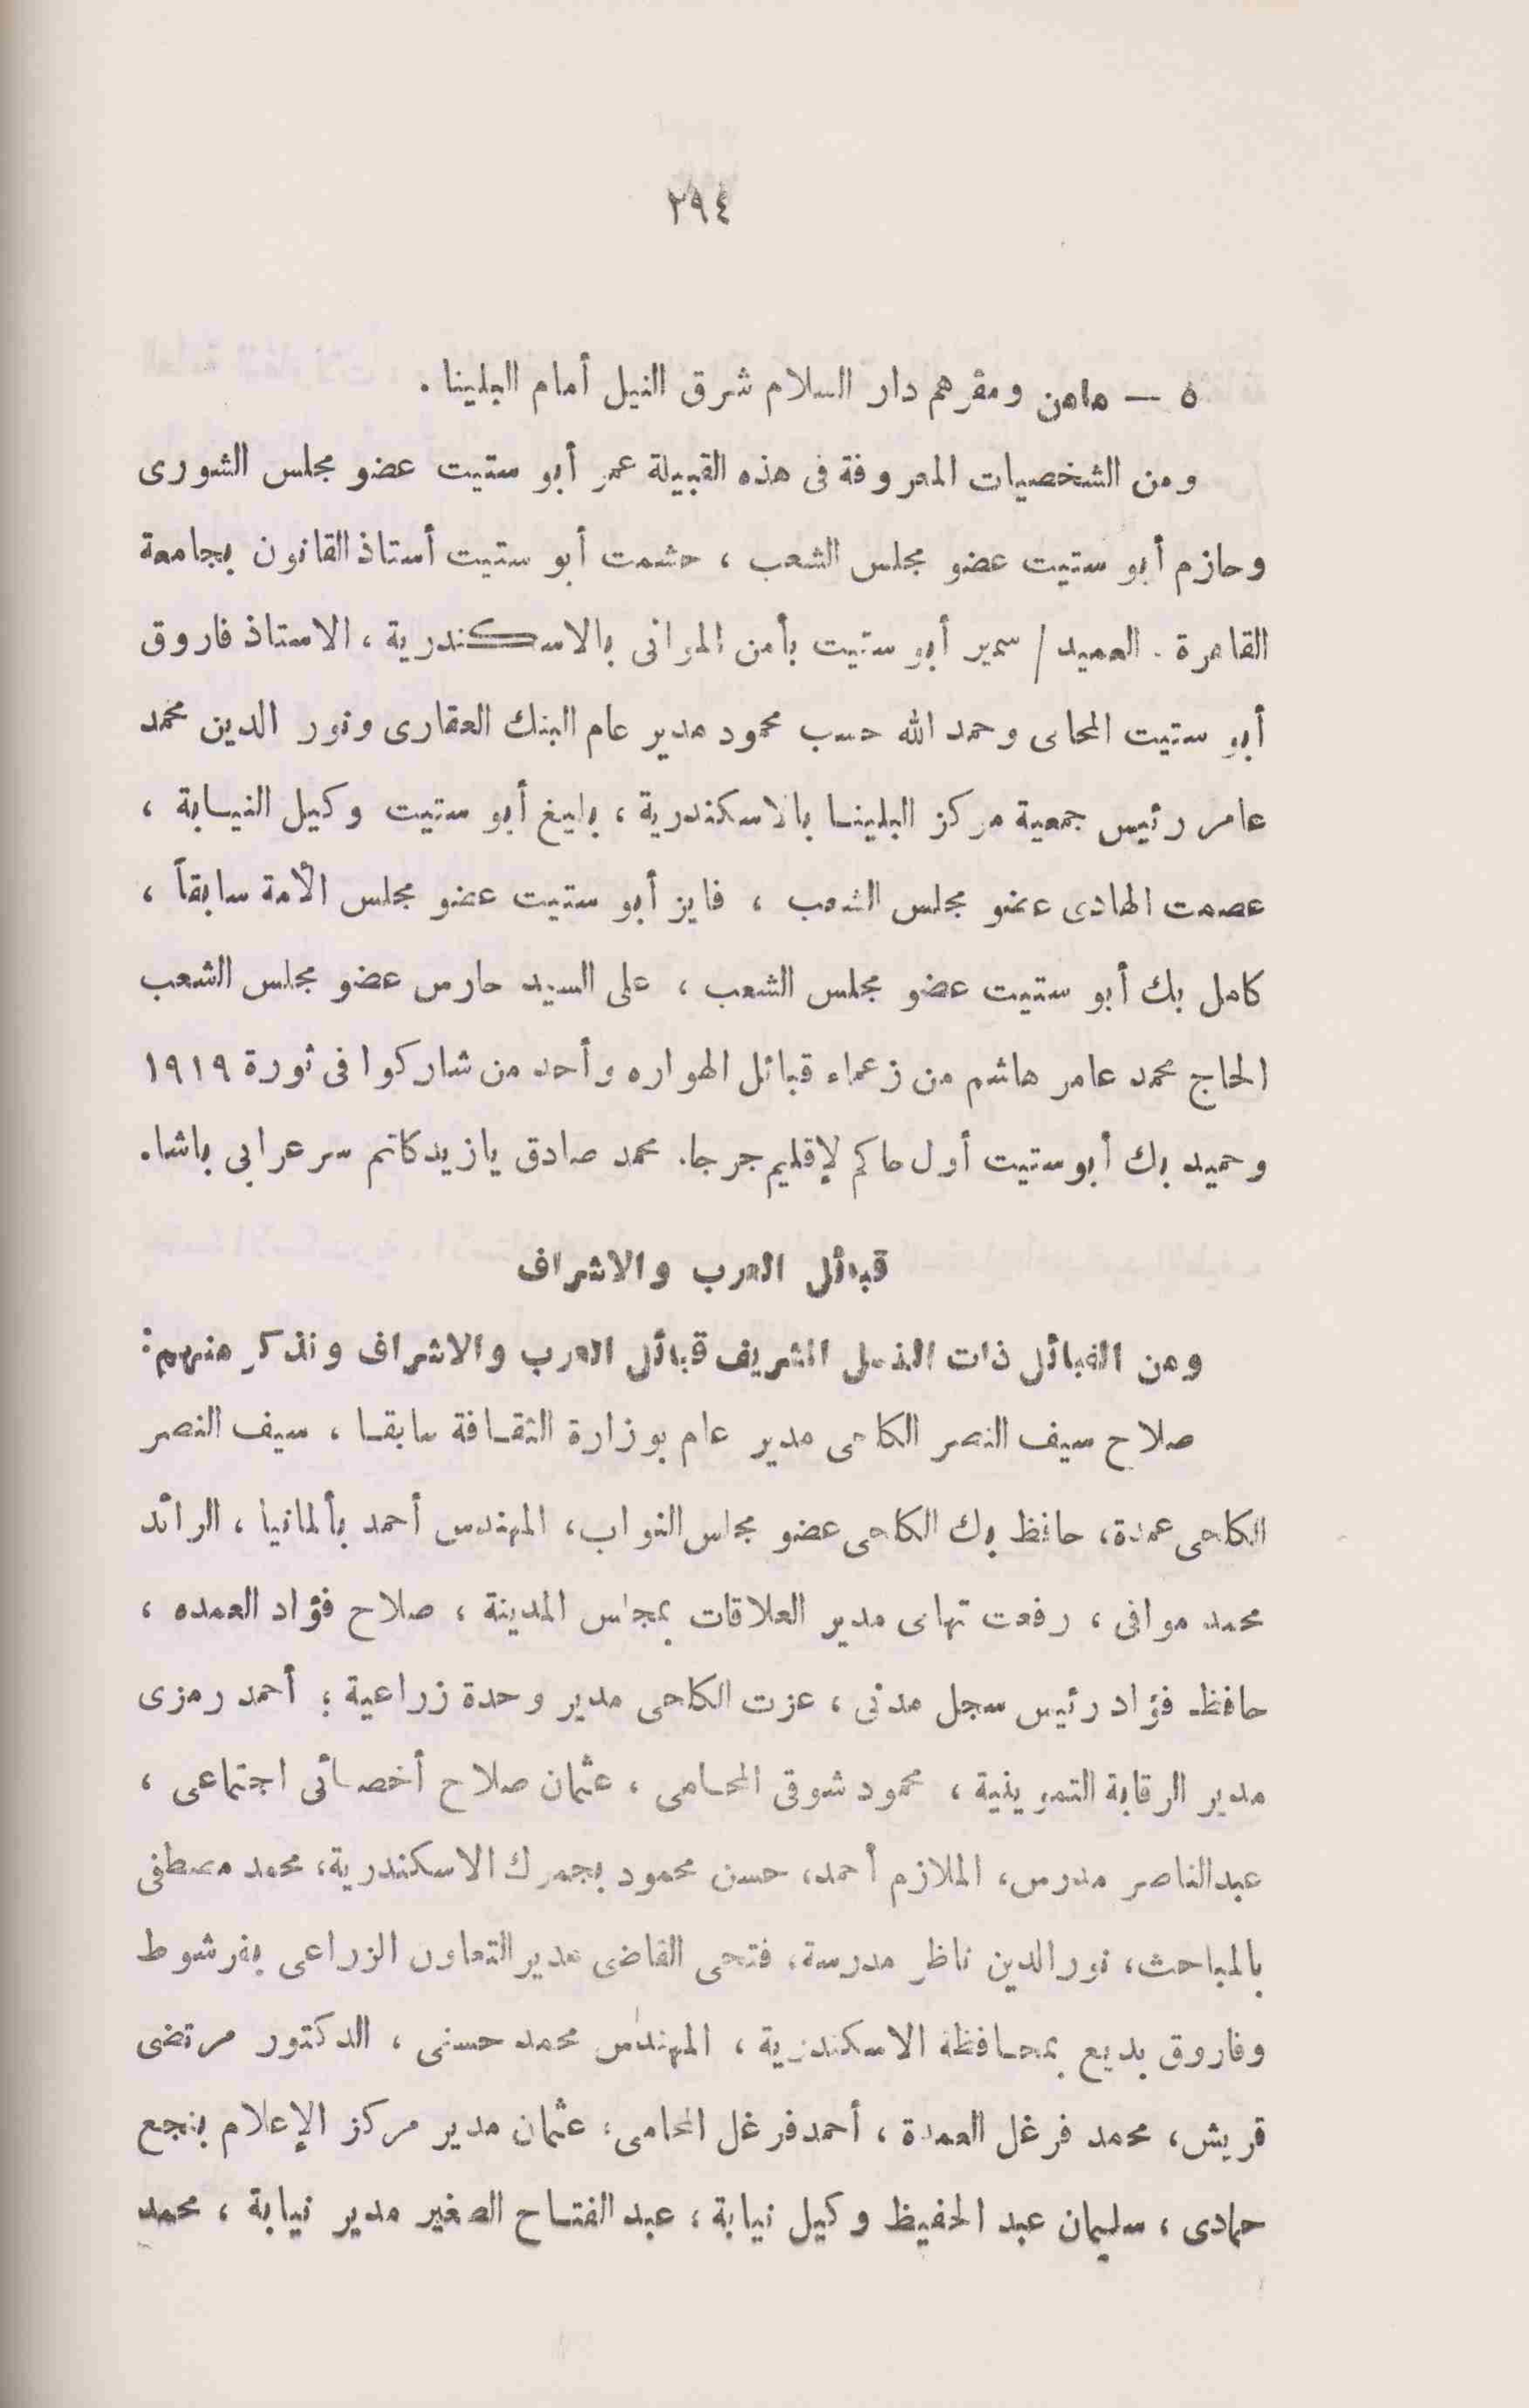 ٢٩٤
٥ — مامن ومقرهم دار السلام شرق النيل أمام البلينا .
ومن الشخصيات المعروفة فى هذه القبيلة عمر أبو ستيت عضو مجلس الشورى
وحازم أبو ستيت عضو مجلس الشعب ، حشمت أبو ستيت أستاذ القانون بجامعة
القاهرة . العميد / سمير أبو ستيت بأمن الموانى بالاسكندرية ، الاستاذ فاروق
أبو ستيت المحامى وحمد الله حسب محمود مدير عام البنك العقارى ونور الدين محمد
عامر رئيس جمعية مركز البلينا بالاسكندرية ، بليغ أبو ستيت وكيل النيابة ،
عصمت الهادى عضو مجلس الشعب ، فايز أبو ستيت عضو مجلس الأمة سابقاً ،
كامل بك أبو ستيت عضو مجلس الشعب ، على السيد حارس عضو مجلس الشعب
الحاج محمد عامر هاشم من زعماء قبائل الهواره وأحد من شاركوا فى ثورة ١٩١٩
وحميد بك أبو ستيت أول حاكم لإقليم جرجا. محمد صادق يازيد كاتم سر عرابى باشا.
قبائل العرب والاشراف
ومن القبائل ذات النسل الشريف قبائل العرب والاشراف ونذكر منهم:
صلاح سيف النصر الكلحى مدير عام بوزارة الثقافة سابقا ، سيف النصر
الكلحى عمدة، حافظ بك الكلحى عضو مجلس النواب، المهندس أحمد بألمانيا ، الرائد
محمد موافى ، رفعت تهامى مدير العلاقات بمجلس المدينة ، صلاح فؤاد العمده ،
حافظ فؤاد رئيس سجل مدنى ، عزت الكلحى مدير وحدة زراعية ؛ أحمد رمزى
مدير الرقابة التموينية ، محمود شوقى المحامى ، عثمان صلاح أخصائى اجتماعى ،
عبد الناصر مدرس، الملازم أحمد، حسن محمود بجمرك الاسكندرية، محمد مصطفى
بالمباحث، نور الدين ناظر مدرسة، فتحى القاضى مدير التعاون الزراعى بفرشوط
وفاروق بديع بمحافظة الاسكندرية ، المهندس محمد حسنى ، الدكتور مرتضى
قريش، محمد فرغل العمدة ، أحمد فرغل المحامى، عثمان مدير مركز الإعلام بنجع
حمادى ، سليمان عبد الحفيظ وكيل نيابة ، عبد الفتاح الصغير مدير نيابة ، محمد